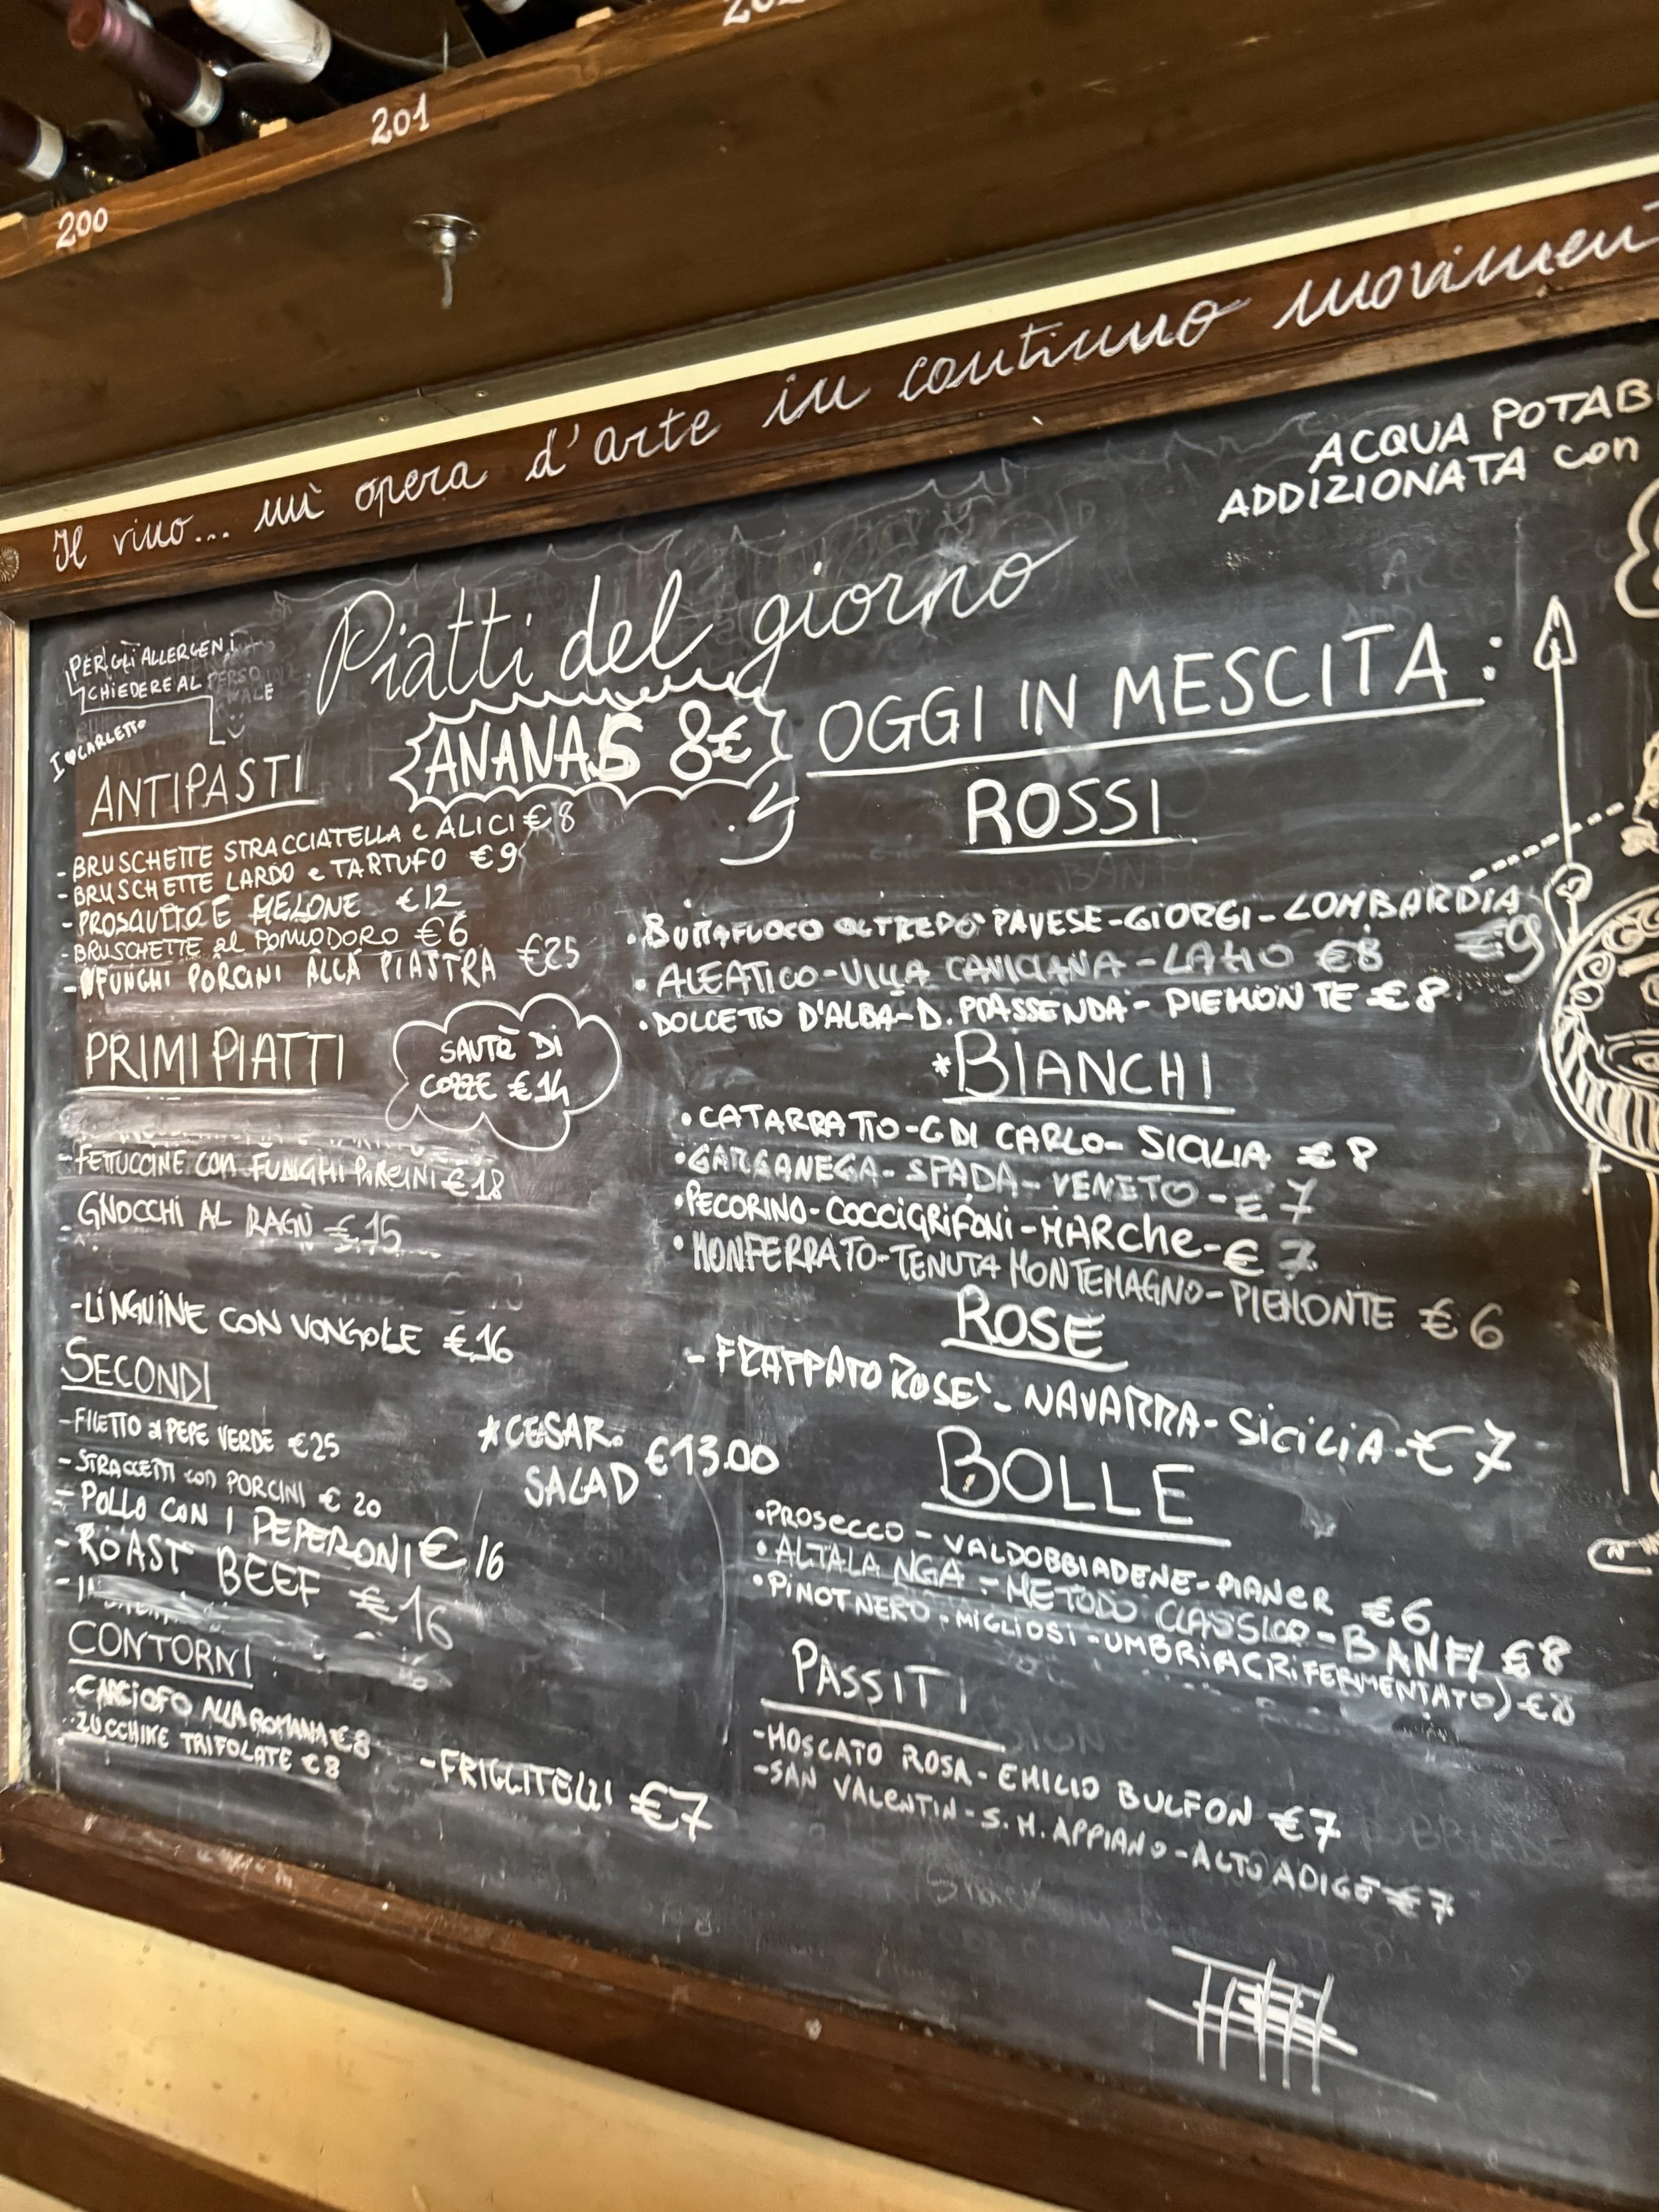 201
200
Il vino... un'opera d'arte in continuo
ACQUA
ADDIZIONATA con
Piatti del giorno
PER GLI ALLERGENI
CHIEDERE AL PERSONALE
I ♥ CARLETTO
ANANAS 8€
ANTIPASTI
- BRUSCHETTE STRACCIATELLA e ALICI € 8
- BRUSCHETTE LARDO e TARTUFO € 9
- PROSCIUTTO E MELONE € 12
- BRUSCHETTE al POMODORO € 6
- FUNGHI PORCINI ALLA PIASTRA €25
PRIMI PIATTI
SAUTÈ DI
COZZE € 14
- FETTUCCINE con FUNGHI PORCINI € 18
- GNOCCHI AL RAGÙ € 15
- LINGUINE CON VONGOLE € 16
SECONDI
- FILETTO al PEPE VERDE €25
- STRACCETTI con PORCINI € 20
- POLLO CON I PEPERONI € 16
- ROAST BEEF € 16
* CESAR.
SALAD €13.00
CONTORNI
• CARCIOFO ALLA ROMANA € 8
• ZUCCHINE TRIFOLATE € 8
- FRIGGITELLI €7
OGGI IN MESCITA:
ROSSI
• BUTTAFUOCO OLTREPO' PAVESE - GIORGI - LOMBARDIA
€9
• ALEATICO - VILLA CAVICIANA - LAZIO €8
• DOLCETTO D'ALBA - D. - PIEMONTE € 8
*BIANCHI
• CATARRATTO - G DI CARLO - SICILIA € 8
• GARGANEGA - SPADA - VENETO - € 7
• PECORINO - COCCIGRIFONI - MARChe - € 7
• MONFERRATO - TENUTA MONTEMAGNO - PIEMONTE € 6
ROSE
- FRAPPATO ROSE' - NAVARRA - SiCiLiA - €7
BOLLE
• PROSECCO - VALDOBBIADENE - PIANER €6
• ALTALANGA - METODO CLASSICO - BANFI €8
• PINOT NERO - MIGLIOSI - UMBRIA (RIFERMENTATO) - €8
PASSITI
- MOSCATO ROSA - EMILIO BULFON €7
- SAN VALENTIN - S. M. APPIANO - ALTO ADIGE € 7